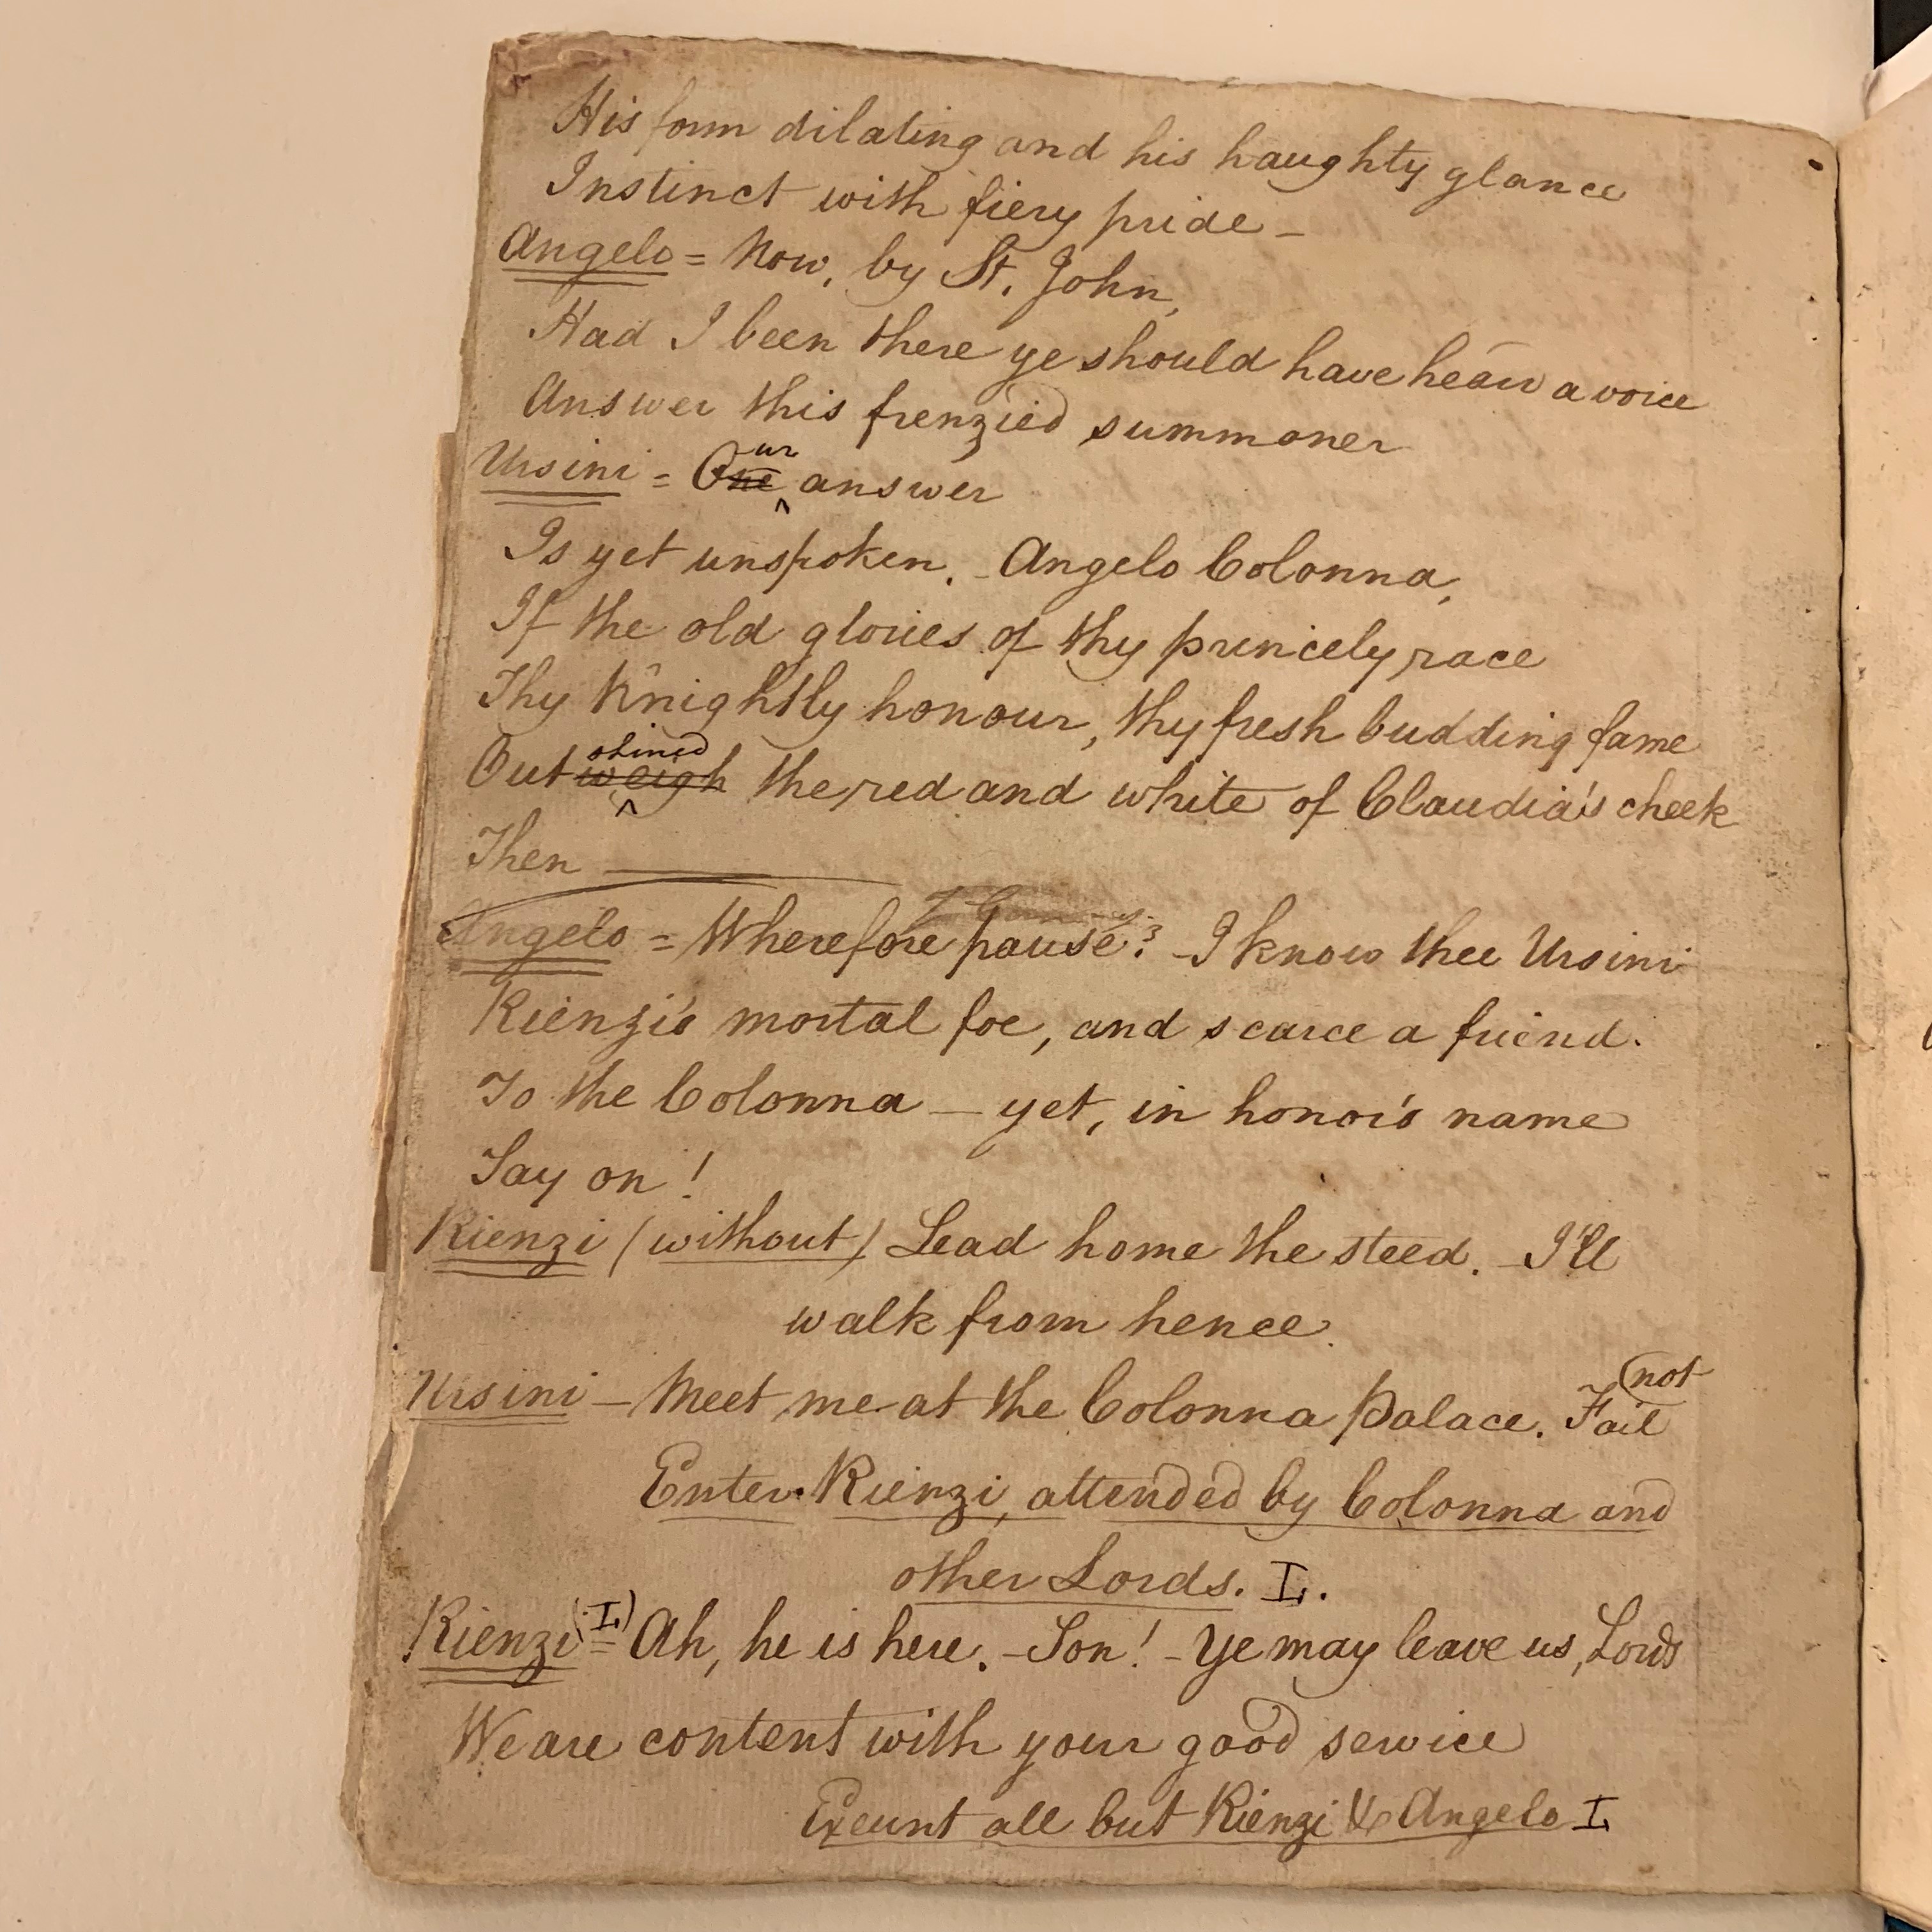 His form dilating and his haughty glance
Instinct with fiery pride –
Angelo = Now, by St. John,
Had I been there ye should have hear a voice
Answer this frenzied summoner
Ursini = One ur answer
Is yet unspoken. – Angelo Colonna,
If the old glories of thy princely race
Thy Knightly honour, thy fresh budding fame
Outweigh shined the red and white of Claudia's cheek
Then ———
Angelo = Wherefore pause? – I know thee Ursini
Rienzi's mortal foe, and scarce a friend.
To the Colonna — yet, in honor's name
Say on!
Rienzi (without) Lead home the steed. – I'll
walk from hence.
Ursini – Meet me at the Colonna Palace. Fail (not
Enter Rienzi, attended by Colonna and
other Lords. L.
Rienzi (L) = Ah, he is here. – Son! – Ye may leave us, Lords
We are content with your good service
Exeunt all but Rienzi & Angelo L